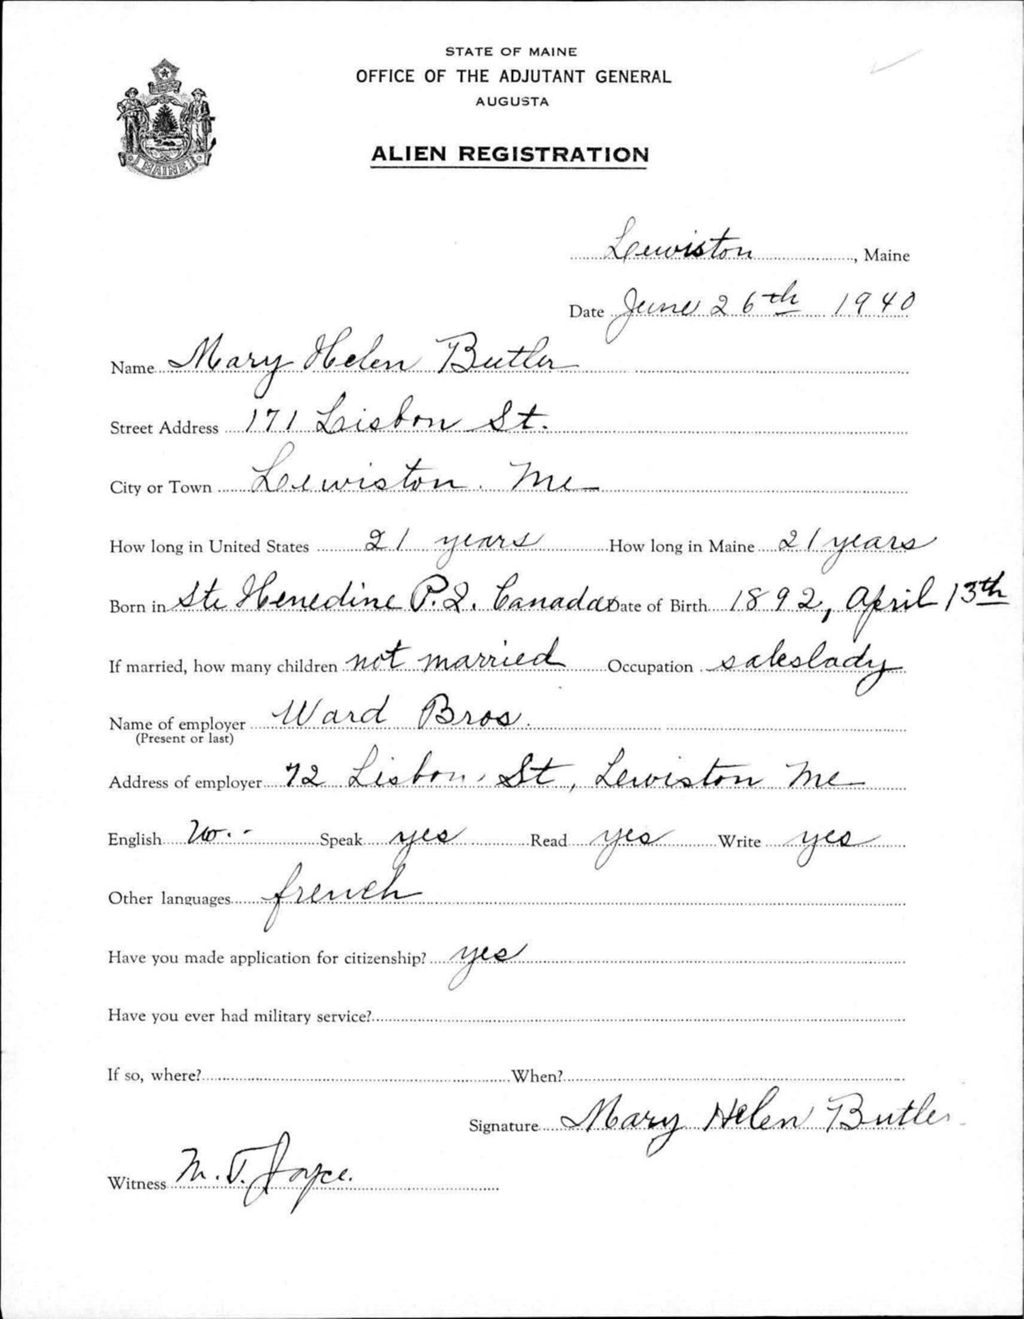 STATE OF MAINE
OFFICE OF THE ADJUTANT GENERAL
AUGUSTA
ALIEN REGISTRATION
MAINE
Lewiston, Maine
Date June 26th 1940
Name Mary Helen Butler
Street Address 171 Lisbon St.
City or Town Lewiston. Me
How long in United States 21 years How long in Maine 21 years
Born in Ste Henedine P.Q. Canada Date of Birth 1892, April 13th
If married, how many children not married Occupation saleslady
Name of employer Ward Bros.
(Present or last)
Address of employer 72 Lisbon St, Lewiston Me
English Speak yes Read yes Write yes
Other languages french
Have you made application for citizenship? yes
Have you ever had military service?
If so, where? When?
Signature Mary Helen Butler
Witness M. T. Joyce.